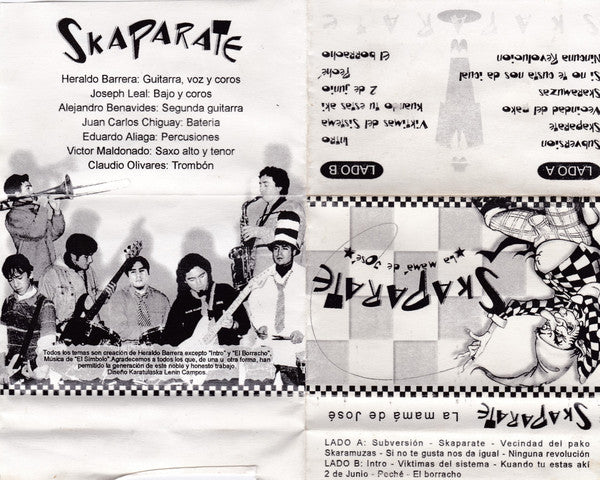 SKAPARATE
Heraldo Barrera: Guitarra, voz y coros
Joseph Leal: Bajo y coros
Alejandro Benavides: Segunda guitarra
Juan Carlos Chiguay: Bateria
Eduardo Aliaga: Percusiones
Victor Maldonado: Saxo alto y tenor
Claudio Olivares: Trombón
Todos los temas son creación de Heraldo Barrera excepto "Intro" y "El Borracho",
Música de "El Simbolo".Agradecemos a todos los que, de una u otra forma, han
permitido la generación de este noble y honesto trabajo.
Diseño Karatulaska Lenin Campos.
LADO A
Subversion
Skaparate
Vecindad del pako
Skaramuzas
Si no te gusta nos da igual
Ninguna Revolucion
LADO B
Intro
Viktimas del Sistema
Kuando tu estas aki
2 de junio
Peché
El borracho
SKAPARATE
*La mamá de José*
SKAPARATE La mamá de José
LADO A: Subversión - Skaparate - Vecindad del pako
Skaramuzas - Si no te gusta nos da igual - Ninguna revolución
LADO B: Intro - Viktimas del sistema - Kuando tu estas akí
2 de Junio - Peché - El borracho